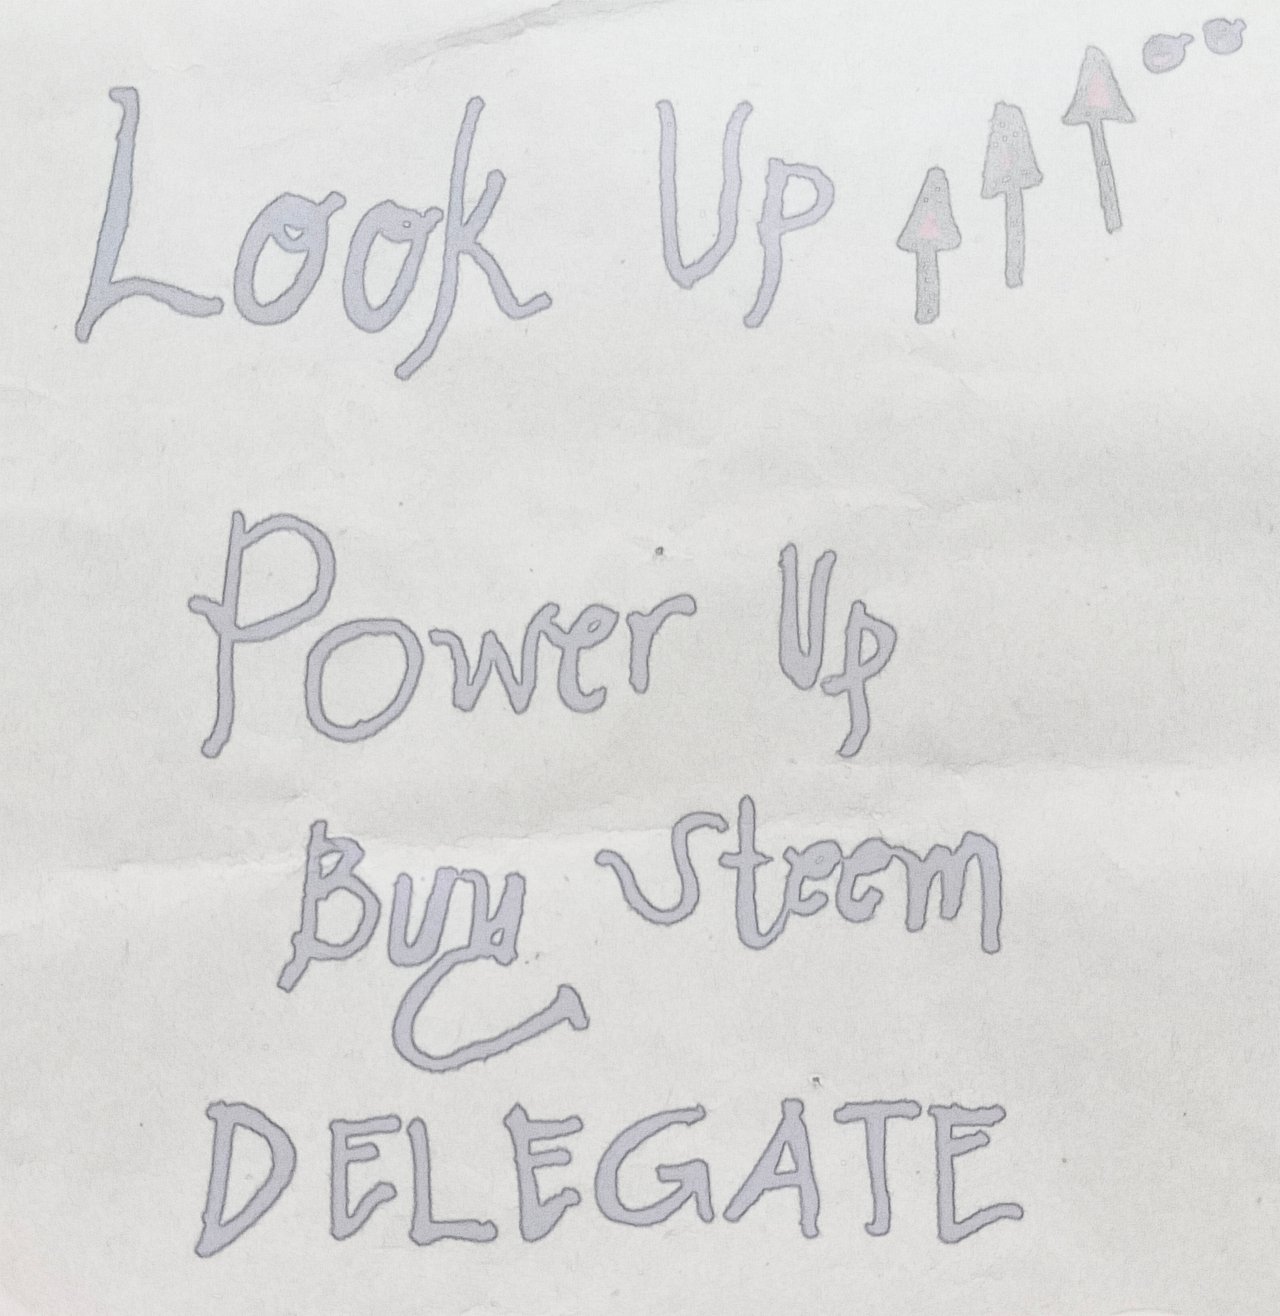 Look Up ↑↑↑..
Power Up
Buy Steem
DELEGATE